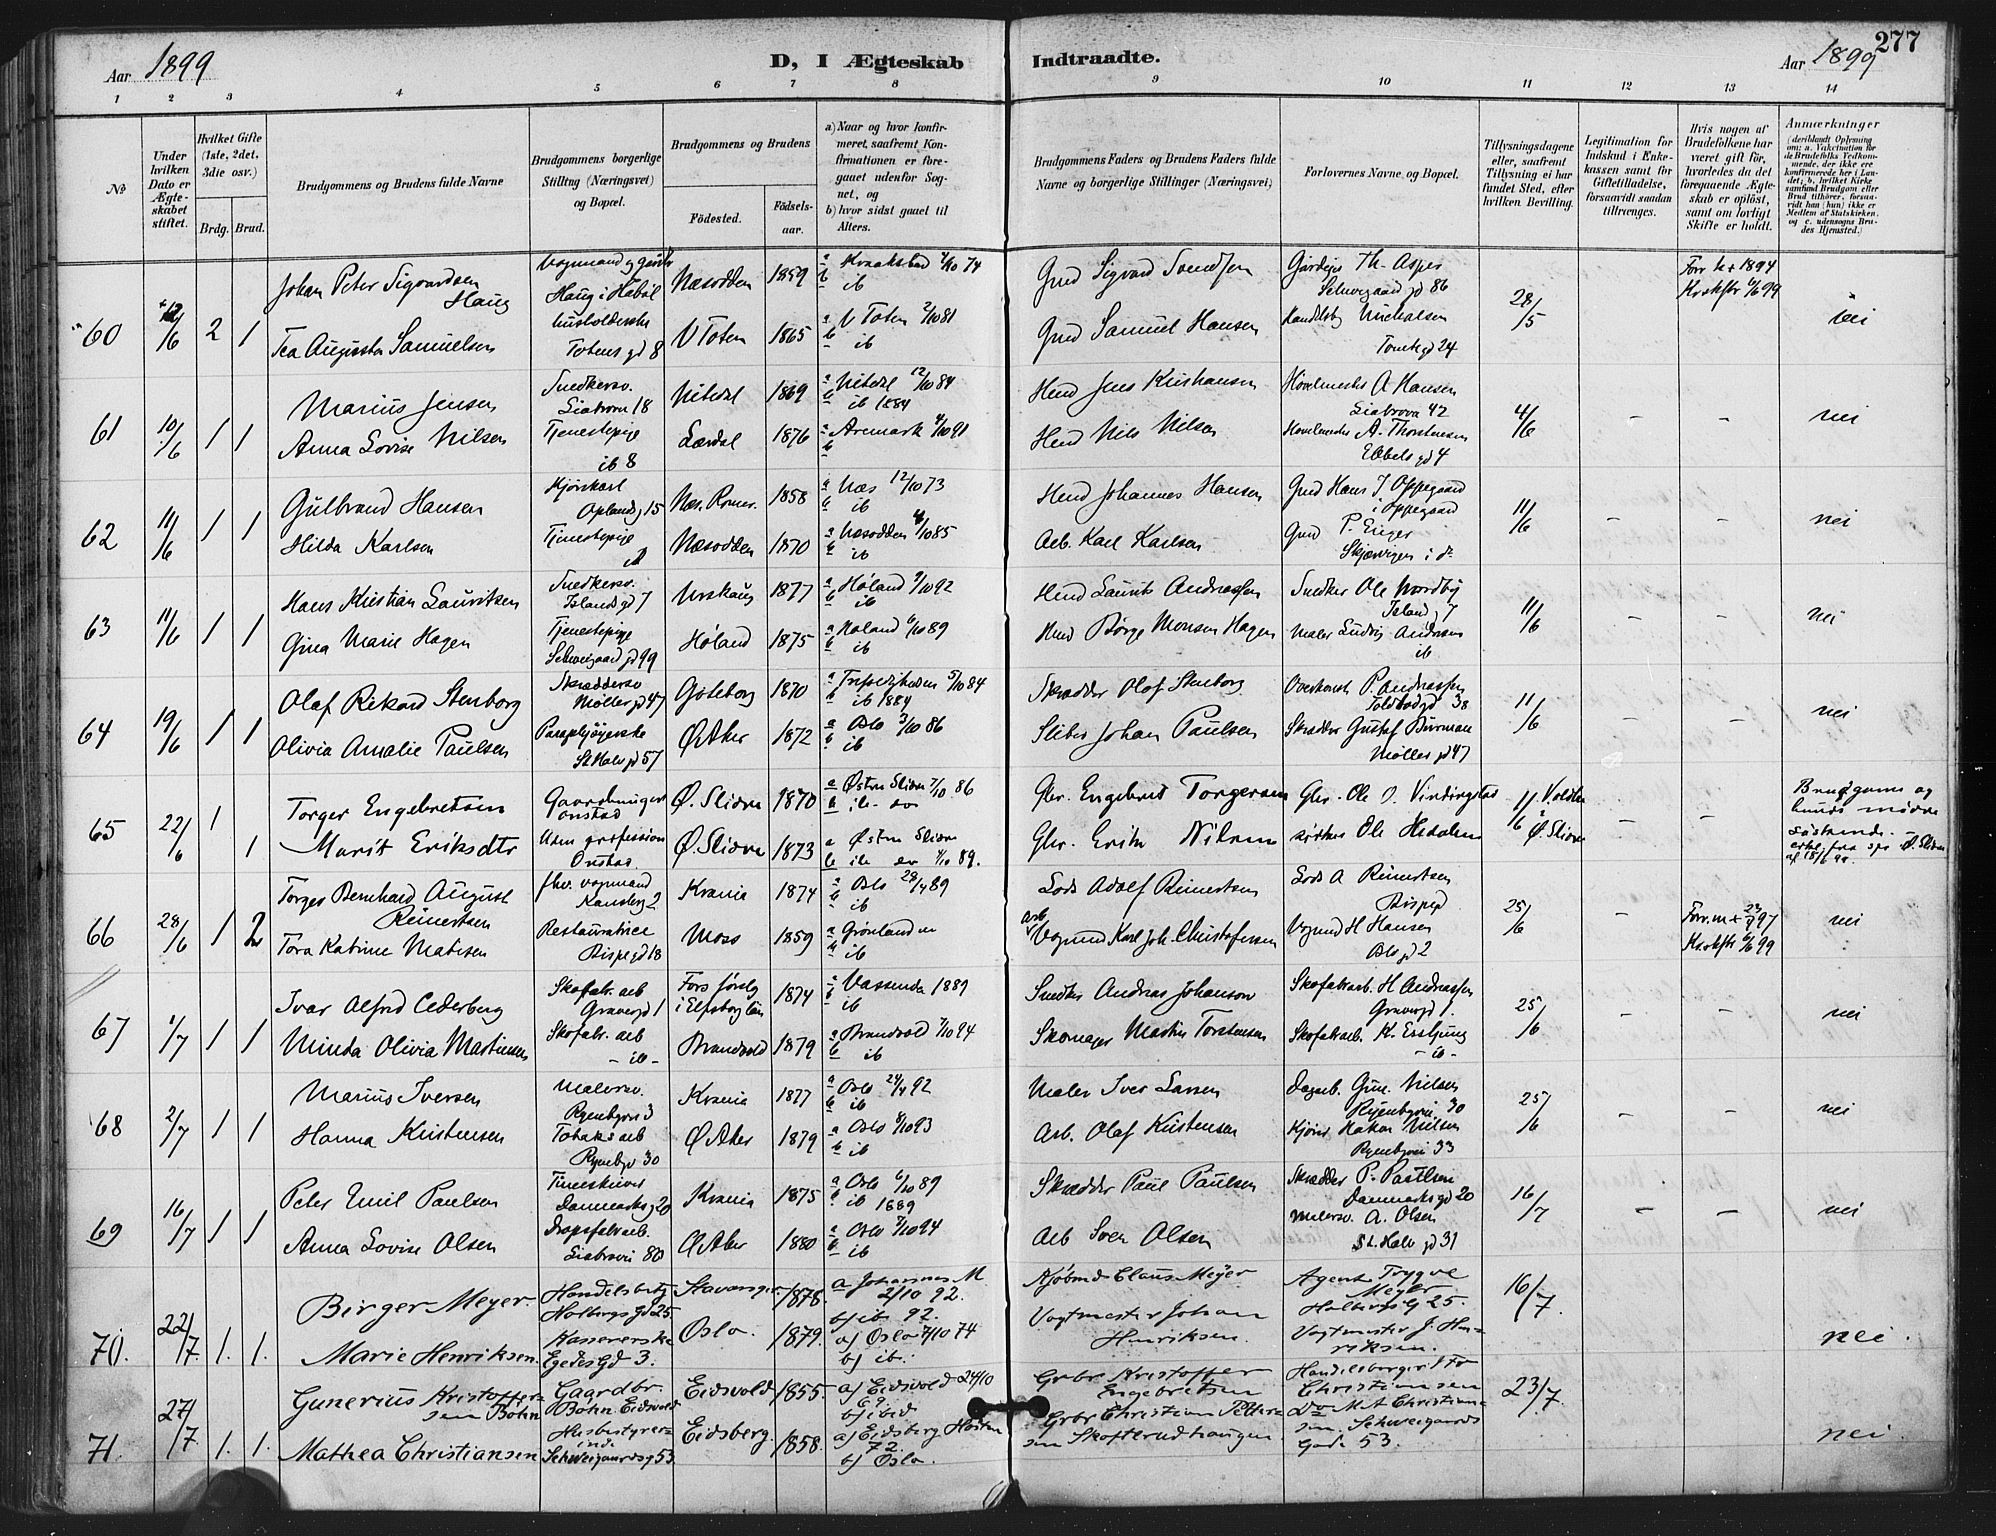 277
Aar 1899
D, I Ægteskab Indtraadte.
Aar 1899
1 2 3 4 5 6 7 8 9 10 11 12 13 14
No
Under hvilken Dato er Ægteskabet stiftet.
Hvilket Gifte (1ste, 2det, 3die osv.)
Brdg. Brud.
Brudgommens og Brudens fulde Navne
Brudgommens borgerlige Stilling (Næringsvei) og Bopæl.
Brudgommens og Brudens
Födested.
Födselsaar.
a) Naar og hvor konfirmeret, saafremt Konfirmationen er foregaaet udenfor Sognet, og
b) hvor sidst gaaet til Alters.
Brudgommens Faders og Brudens Faders fulde Navne og borgerlige Stillinger (Næringsvei)
Forlovernes Navne og Bopæl.
Tillysningsdagene eller, saafremt Tillysning ei har fundet Sted, efter hvilken Bevilling.
Legitimation for Indskud i Enkekassen samt for Giftetilladelse, forsaavidt saadan tiltrænges.
Hvis nogen af Brudefolkene har været gift för, hvorledes da det foregaaende Ægteskab er oplöst, samt om lovligt Skifte er holdt.
Anmærkninger
(deriblandt Oplysning om: a. Vakcination for de Brudefolks Vedkommende, der ikke ere konfirmerede her i Landet; b. hvilket Kirkesamfund Brudgom eller Brud tilhörer, forsaavidt han (hun) ikke er Medlem af Statskirken, og c. udensogns Brudes Hjemsted.)
60 12/6 2 1
Johan Peter Sigvardsen Haug
Haug i Hobøl Næsodden 1859 a Kraakstad 4/10 74 b ib
Gmd Sigvard Svendsen
Gårdejer Th. Asper Schweigaard gd 86
28/5
Forr. h + 1894
nei
Tea Augusta Samuelsen
Totens gd 8 V Toten 1865 a V Toten 2/10 81 b ib
Gmd Samuel Hansen
Michalsen Tomtegd 24
61 10/6 1 1
Marius Jensen
Snedkersv. Liabroen 18 Nitedal 1869 a Nitedal 12/10 84 b ib 1884
Hmd Jens Kristiansen
Høvelmester A Hansen Liabrovn 42
4/6 - - nei
Anna Lovise Nilsen
Tjenestepige ib 8 Lærdal 1876 a Aremark 4/10 91 b
Hmd Nils Nilsen
Høvelmester A. Thorstensen Ebbels gd 4
62 11/6 1 1
Gulbrand Hansen
Kjørekarl Oplands g 15 Næs. Romer. 1858 a Næs 12/10 73 b ib
Hmd Johannes Hansen
Gmd Hans J. Oppegaard i Oppegaard
11/6 - - nei
Hilda Karlsen
Tjenestepige Næsodden 1870 a Næsodden 4/10 85 b ib
Arb. Karl Karlsen
Gmd P. Enger Skjærvigen i do
63 11/6 1 1
Hans Kristian Lauritsen
Snedkersv. Islandsgd 7 Urskaug 1877 a Høland 9/10 92 b ib
Hmd Laurits Andreassen
Snedker Ole Nordby Island g 7
11/6 - - nei
Gina Marie Hagen
Tjenestepige Schweigaard gd 99 Høland 1875 a Høland 6/10 89 b ib
Hmd Børge Monsen Hagen
Maler Ludvig Andersen ib
64 19/6 1 1
Olaf Rikard Stenborg
Skræddersv Møllergd 47 Gøteborg 1870 b ib 1884
Skrædder Olof Stenborg
P. Andreassen Toldbodgd 38
11/6 - - nei
Olivia Amalie Paulsen
St Halv gd 57 Ø Aker 1872 a Oslo 3/10 86 b ib
Sliber Johan Paulsen
Skrædder Gustaf Burman Møller gd 47
65 22/6 1 1
Torger Engebretsen
Gaardbruger Onstad Ø. Slidre 1870 a Østre Slidre 7/10 86
Gbr. Engebret Torgersen
Gbr. Ole O. Vindingstad
11/6 Volden Ø. Slidre - -
Brudgoms og bruds mødre søstende.
Marit Eriksdtr
Uden profession Onstad Ø. Slidre 1873 a Østre Slidre 89.
Gbr. Erik Nilsen
kirkes. Ole Hedalen
66 28/6 1 2
Torger Bernhard August Reinertsen
fhv. vognmand Kanslerg 2 Krania 1874 a Oslo 28/4 89 b ib
Lods Adolf Reinertsen
Lods A Reinertsen Bispegd
25/6 - Forr. m + 23/9 97 nei
Tora Katrine Matisen
Restauratrice Bispegd 18 Moss 1859 a Grønland b ib
Vognmd Karl Joh. Christofersen
Vognmd H Hansen Oslo gd 2
67 1/7 1 1
Ivar Alfred Cederberg
Skofabr. arb Gravergd 1 Fors församlg i Elfsborg län 1874 a Vassenda 1889 b ib
Snedker Andreas Johanson
Skofabrarb. H Andreassen Gravergd 1.
25/6 - - nei
Minda Olivia Martinsen
Skofabr. arb - ib - Brandvold 1879 a Brandvol 7/10 94 b ib
Skomager Martin Torstensen
Skofabrarb. K. Essljung - ib -
68 2/7 1 1
Marius Iversen
Malersv. Ryenbgvei 3 Krania 1877 a Oslo 24/4 92 b ib
Maler Iver Larsen
Dagarb. Gun. Nielsen Ryenbgvei 30
25/6 - - nei
Hanna Kristensen
Tobaksarb Ryenbgv 30 Ø Aker 1879 a Oslo 8/10 93 b ib
Arb. Olaf Kristensen
Kjører Hakon Nilsen Ryenbgvei 33
69 16/7 1 1
Peter Emil Paulsen
Timeskriver Danmarks g 20 Krania 1875 a Oslo 6/10 89 b ib 1889
Skrædder Paul Paulsen
Skrædder P. Paulsen Danmarks gd 20
16/7 - - nei
Anna Lovise Olsen
Dropsfabrarb. Liabrovei 80 Ø Aker 1880 a Oslo 7/10 94 b ib
Arb Sven Olsen
Malersv. A. Olsen St. Halv gd 31
70. 22/7. 1. 1.
Birger Meyer.
Handelsbetj Holbergs Gd 25. Stavanger. 1878. a Johannes M. 2/10 92. b) ib. 92.
Kjøbmd Claus Meyer
Agent Trygve Meyer Holbergs G 25.
16/7. nei.
Marie Henriksen.
Kassererske Egedes Gd 3. Oslo. 1879. a) Oslo 7/10 74 b) ib.
Vogtmester Johan Henriksen.
Vogtmester J. Henriksen.
71. 27/7. 1. 1.
Gunerius Kristoffersen Bohn
Gaardbr. Bohn Eidsvold Eidsvold 1855. a) Eidsvold 24/10 69 b) ibid
Grbr Kristoffer Engebretsen
Handelsborger Christiansen
23/7. nei
Mathea Christiansen
Husbestyrerinde Schweigaards g 53 Eidsberg. 1858. a) Eidsberg Høsten 72. b) Oslo.
Grbr Christian Pettersen Skofterudhaugen
Do M A Christiansen. Schweigaards Gade 53.